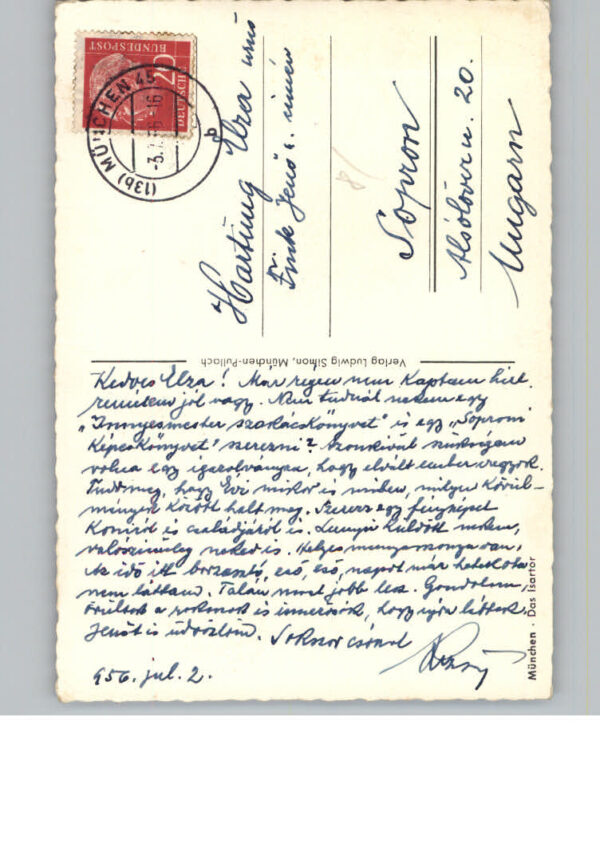 20
DEUTSCHE
BUNDESPOST
(13b) MÜNCHEN 45
-3.7.56-16
b
Hartung Elza
Fink Jenő u. címén
Sopron
Alsólőver u. 20.
Ungarn
Verlag Ludwig Simon, München-Pullach
Kedves Elza! Már régen nem kaptam hírt,
remélem jól vagy. Nem tudnál nekem egy
"Ínyesmester szakácskönyvét" és egy "Soproni
Képeskönyvet" szerezni? Azonkívül szükségem
volna egy igazolványra, hogy elvált ember vagyok.
Tudd meg, hogy Évi mikor és miben, milyen körül-
mények között halt meg. Szerezz egy fényképet
és családjáról is. küldött nekem,
valószínűleg neked is. Helyes van.
Az idő itt borzasztó, eső, eső, napot már hetek óta
nem láttam. Talán most jobb lesz. Gondolom,
örültek a rokonok és ismerősök, hogy újra láttak
Jenőt is üdvözlöm. Sokszor csókol
956. júl. 2.
München · Das Isartor